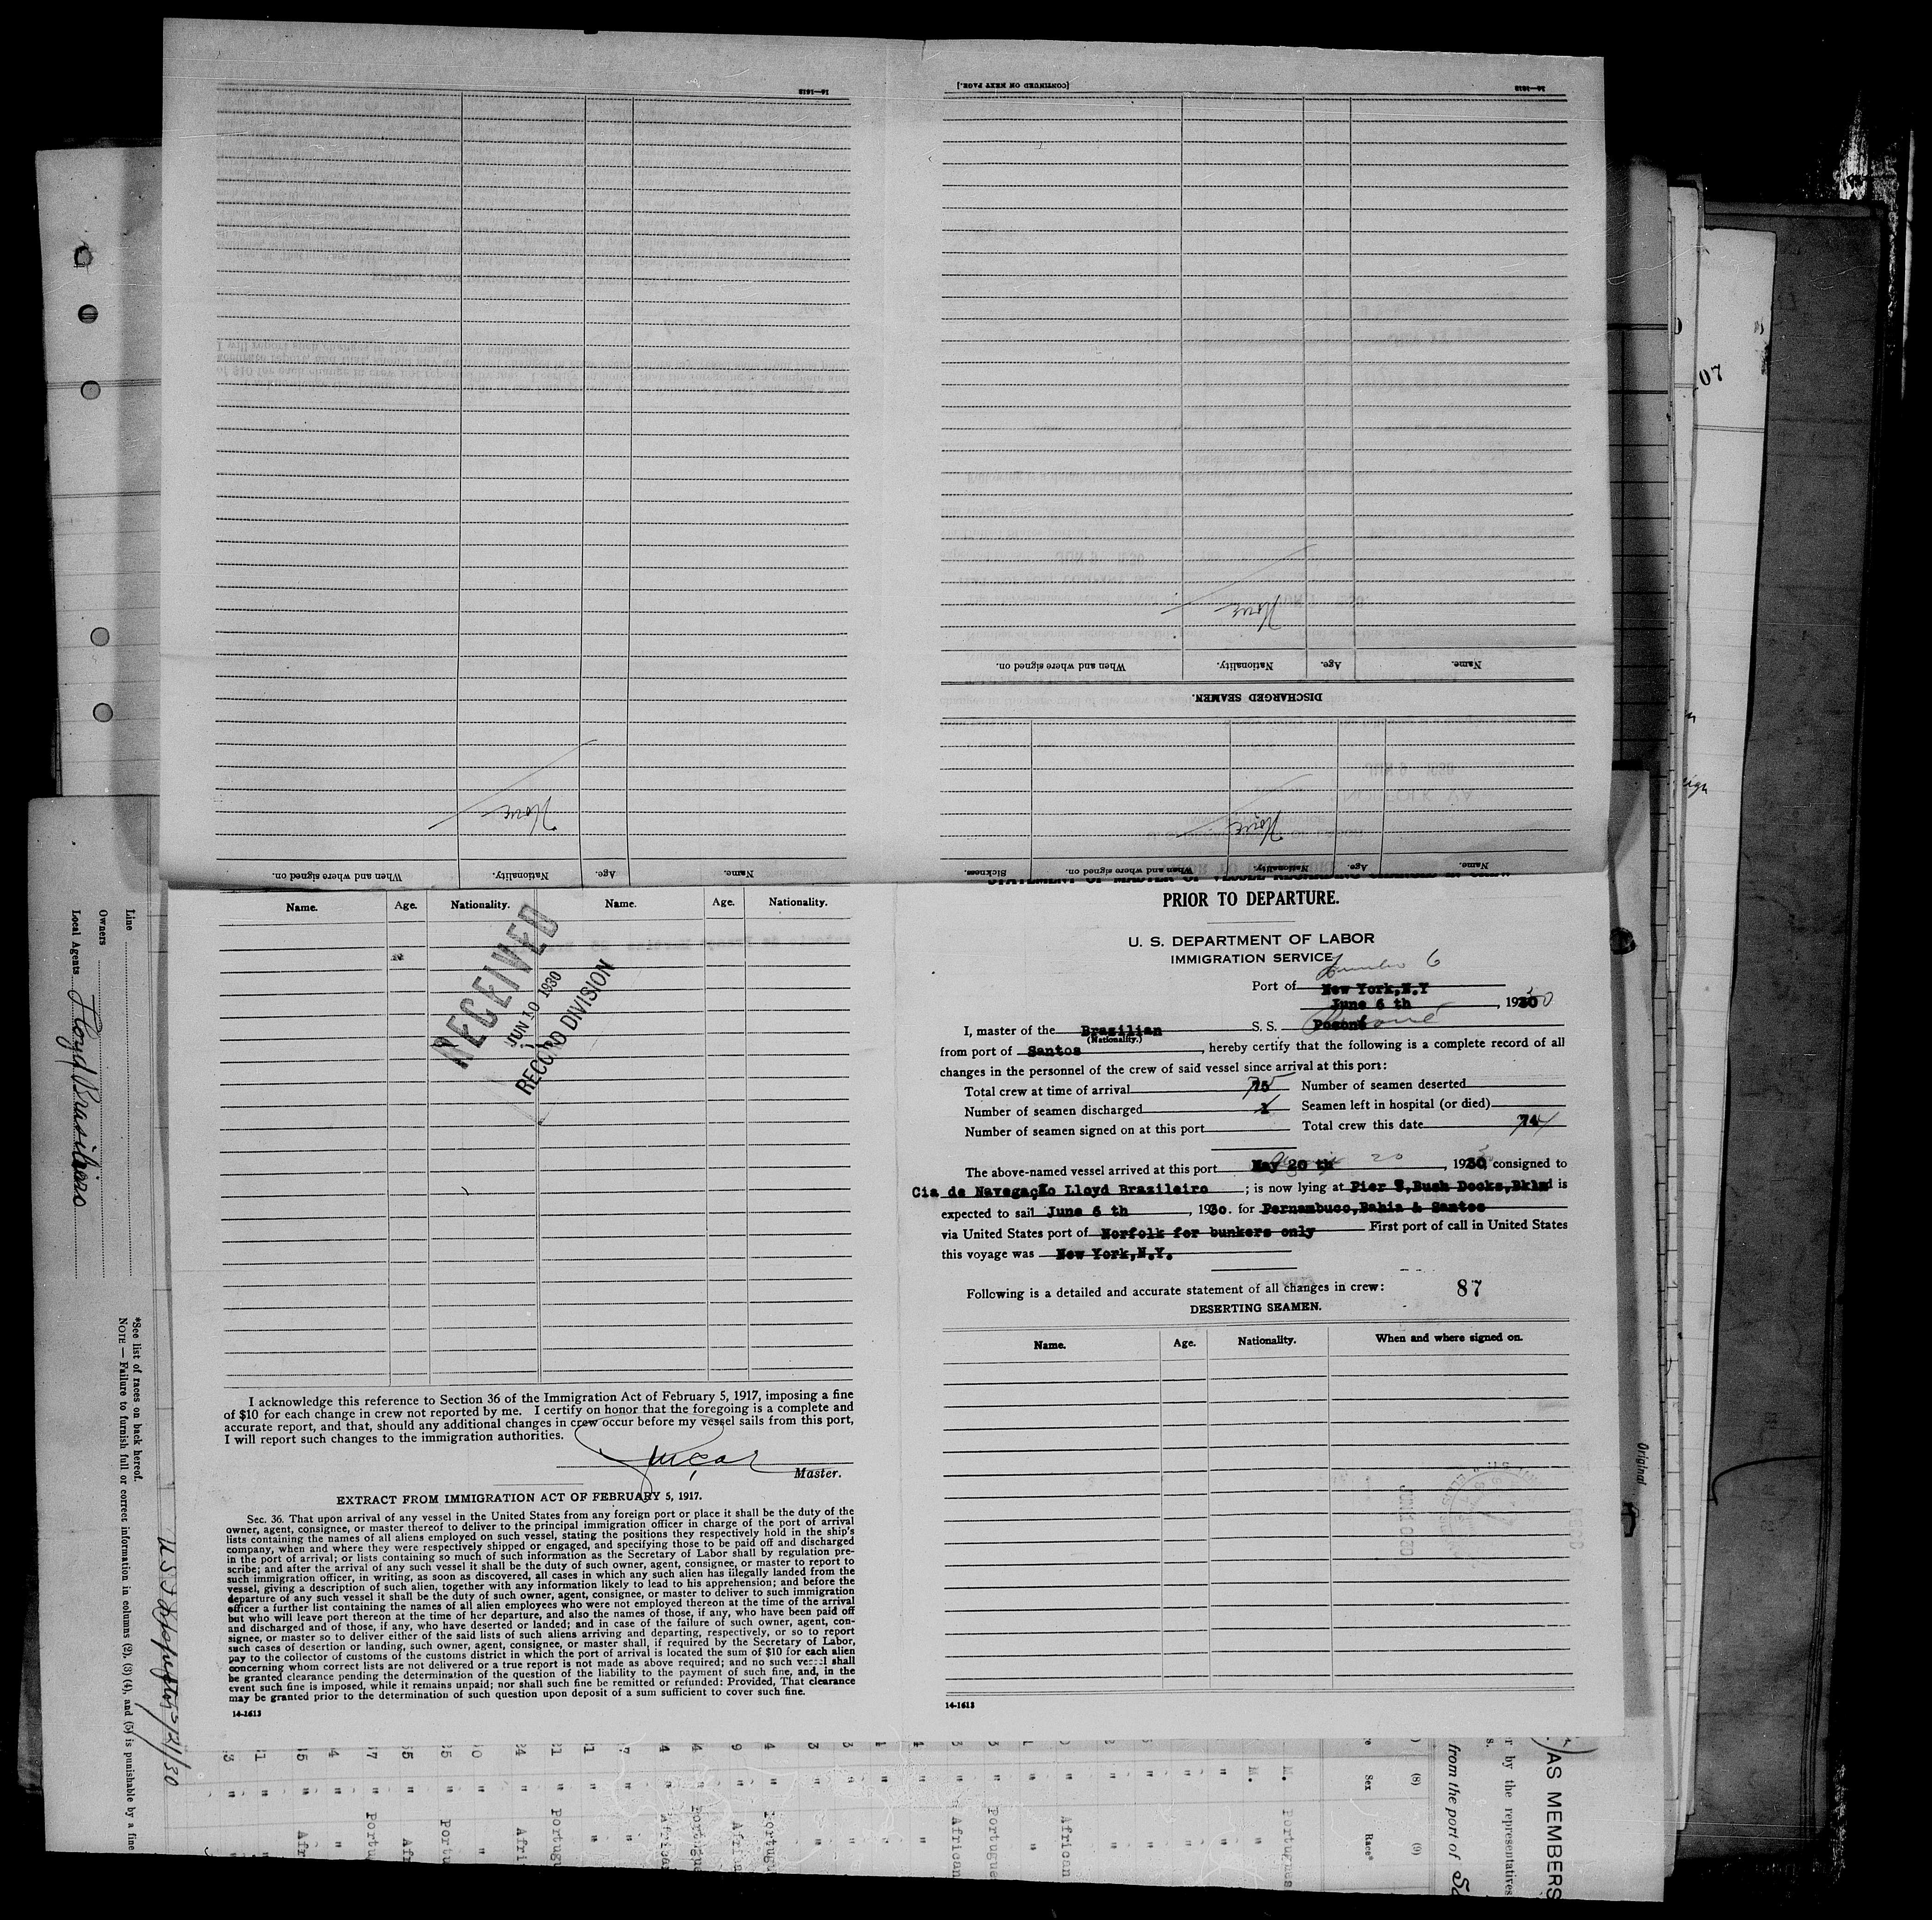 14-1613
[CONTINUED ON NEXT PAGE.]
14-1613
None
Name. Age. Nationality. When and where signed on.
DISCHARGED SEAMEN.
None
None
Name. Age. Nationality. When and where signed on.
Name. Age. Nationality. When and where signed on. Sickness.
None
Name. Age. Nationality. Name. Age. Nationality.
RECEIVED
JUN 10 1930
RECORD DIVISION
I acknowledge this reference to Section 36 of the Immigration Act of February 5, 1917, imposing a fine
of $10 for each change in crew not reported by me. I certify on honor that the foregoing is a complete and
accurate report, and that, should any additional changes in crew occur before my vessel sails from this port,
I will report such changes to the immigration authorities.
Master.
EXTRACT FROM IMMIGRATION ACT OF FEBRUARY 5, 1917.
Sec. 36. That upon arrival of any vessel in the United States from any foreign port or place it shall be the duty of the
owner, agent, consignee, or master thereof to deliver to the principal immigration officer in charge of the port of arrival
lists containing the names of all aliens employed on such vessel, stating the positions they respectively hold in the ship's
company, when and where they were respectively shipped or engaged, and specifying those to be paid off and discharged
in the port of arrival; or lists containing so much of such information as the Secretary of Labor shall by regulation pre-
scribe; and after the arrival of any such vessel it shall be the duty of such owner, agent, consignee, or master to report to
such immigration officer, in writing, as soon as discovered, all cases in which any such alien has illegally landed from the
vessel, giving a description of such alien, together with any information likely to lead to his apprehension; and before the
departure of any such vessel it shall be the duty of such owner, agent, consignee, or master to deliver to such immigration
officer a further list containing the names of all alien employees who were not employed thereon at the time of the arrival
but who will leave port thereon at the time of her departure, and also the names of those, if any, who have been paid off
and discharged and of those, if any, who have deserted or landed; and in case of the failure of such owner, agent, con-
signee, or master so to deliver either of the said lists of such aliens arriving and departing, respectively, or so to report
such cases of desertion or landing, such owner, agent, consignee, or master shall, if required by the Secretary of Labor,
pay to the collector of customs of the customs district in which the port of arrival is located the sum of $10 for each alien
concerning whom correct lists are not delivered or a true report is not made as above required; and no such vessel shall
be granted clearance pending the determination of the question of the liability to the payment of such fine, and, in the
event such fine is imposed, while it remains unpaid; nor shall such fine be remitted or refunded: Provided, That clearance
may be granted prior to the determination of such question upon deposit of a sum sufficient to cover such fine.
14-1613
PRIOR TO DEPARTURE.
U. S. DEPARTMENT OF LABOR
IMMIGRATION SERVICE
Port of New York,N.Y
June 6 th, 1930
I, master of the Brazilian S. S. Poconé
(Nationality.)
from port of Santos, hereby certify that the following is a complete record of all
changes in the personnel of the crew of said vessel since arrival at this port:
Total crew at time of arrival 75 Number of seamen deserted
Number of seamen discharged 1 Seamen left in hospital (or died)
Number of seamen signed on at this port Total crew this date 74
The above-named vessel arrived at this port May 20 th, 1930 consigned to
Cia de Navegação Lloyd Brazileiro; is now lying at Pier , Bush Docks,Bkln is
expected to sail June 6 th, 1930. for Pernambuco,Bahia & Santos
via United States port of Norfolk for bunkers only First port of call in United States
this voyage was New York,N.Y.
Following is a detailed and accurate statement of all changes in crew: 87
DESERTING SEAMEN.
Name. Age. Nationality. When and where signed on.
14-1613
Line
Owners
Local Agents Lloyd Brasileiro
*See list of races on back hereof.
NOTE — Failure to furnish full or correct information in columns (2), (3) (4), and (5) is punishable by a fine
Original
AS MEMBERS
r by the representatives
from the port of
(8) (9)
Sex Race*
M. Portugues
M.
African
Portugue
African
Portugu
Africa
Portugue
African
Portugu
Afri
Portu
Afr
Portu
Afr
07